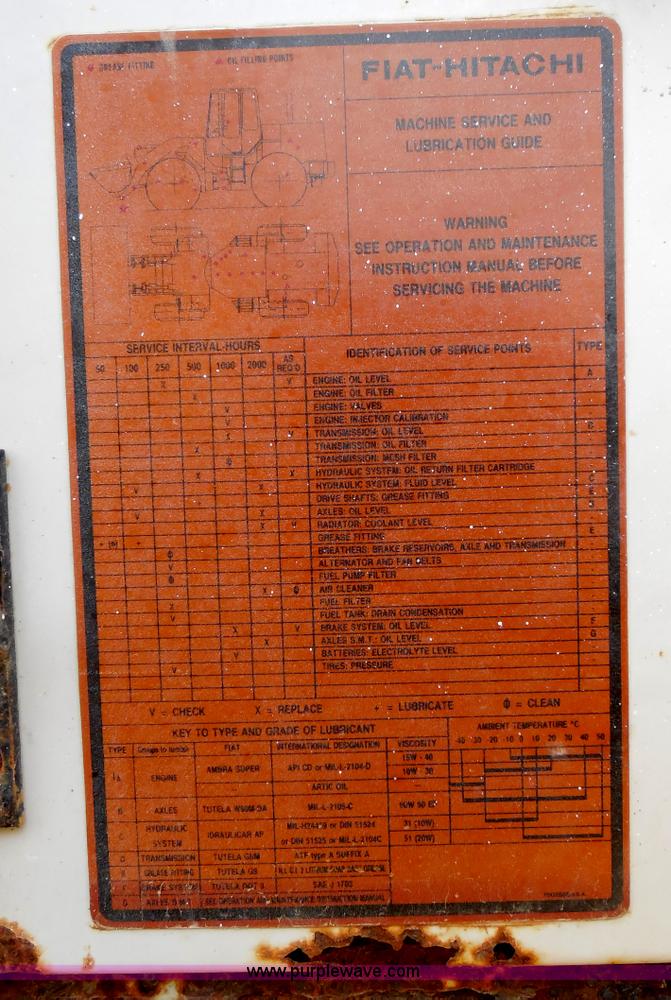 GREASE FITTING
OIL FILLING POINTS
FIAT-HITACHI
MACHINE SERVICE AND
LUBRICATION GUIDE
WARNING
SEE OPERATION AND MAINTENANCE
INSTRUCTION MANUAL BEFORE
SERVICING THE MACHINE
SERVICE INTERVAL-HOURS
IDENTIFICATION OF SERVICE POINTS
TYPE
50 100 250 500 1000 2000 AS REQ'D
ENGINE: OIL LEVEL A
ENGINE: OIL FILTER
ENGINE: VALVES
ENGINE: INJECTOR CALIBRATION
TRANSMISSION: OIL LEVEL
TRANSMISSION: OIL FILTER
TRANSMISSION: MESH FILTER
HYDRAULIC SYSTEM: OIL RETURN FILTER CARTRIDGE
HYDRAULIC SYSTEM: FLUID LEVEL
DRIVE SHAFTS: GREASE FITTING
AXLES: OIL LEVEL
RADIATOR: COOLANT LEVEL
GREASE FITTING E
BREATHERS: BRAKE RESERVOIRS, AXLE AND TRANSMISSION
ALTERNATOR AND FAN BELTS
FUEL PUMP FILTER
AIR CLEANER
FUEL FILTER
FUEL TANK: DRAIN CONDENSATION
BRAKE SYSTEM: OIL LEVEL F
AXLES S.M.T.: OIL LEVEL G
BATTERIES: ELECTROLYTE LEVEL
TIRES: PRESSURE
V = CHECK X = REPLACE + = LUBRICATE Φ = CLEAN
KEY TO TYPE AND GRADE OF LUBRICANT
AMBIENT TEMPERATURE °C
-40 -30 -20 -10 0 10 20 30 40 50
TYPE FIAT INTERNATIONAL DESIGNATION VISCOSITY
ENGINE AMBRA SUPER API CD or MIL-L-2104-D 15W - 40
10W - 30
ARTIC OIL
B AXLES TUTELA MIL-L-2105-C
C HYDRAULIC SYSTEM IDRAULICAR AP or DIN 51524 31 (10W)
or DIN 51525 or MIL-L-2104C 51 (20W)
D TRANSMISSION TUTELA GI/M ATF type A SUFFIX A
GREASE FITTING TUTELA G9
BRAKE SYSTEM TUTELA DOT SAE J 1703
G AXLES SEE OPERATION AND MAINTENANCE INSTRUCTION MANUAL
www.purplewave.com